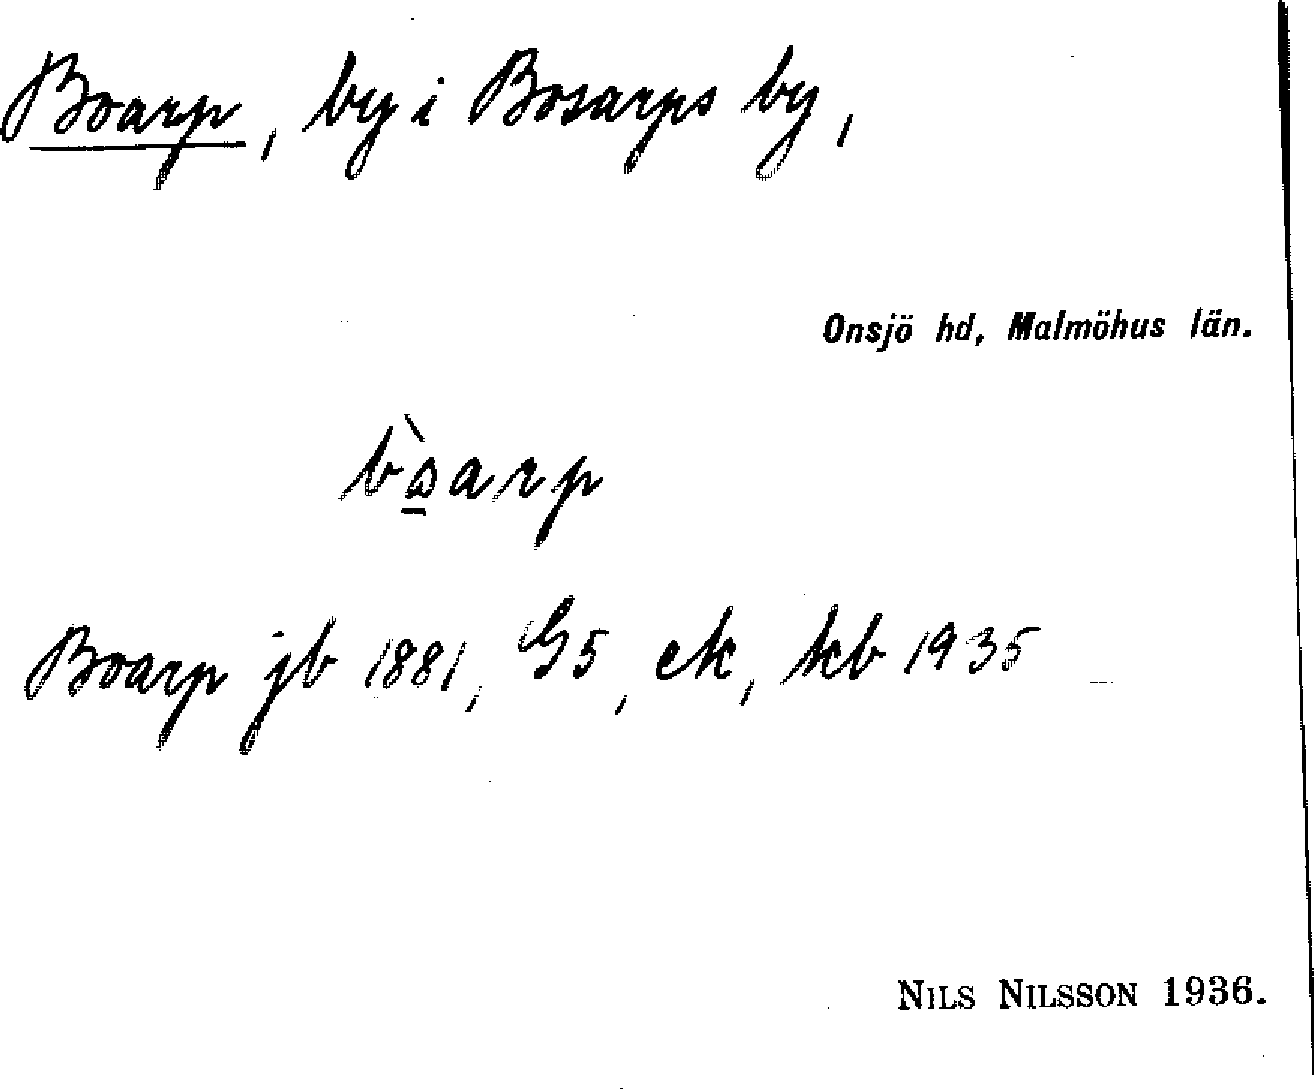 Boarp, by i Bosarps by,
Onsjö hd, Malmöhus län.
Boarp jb 1881, G5, ek, kb 1935
NILS NILSSON 1936.